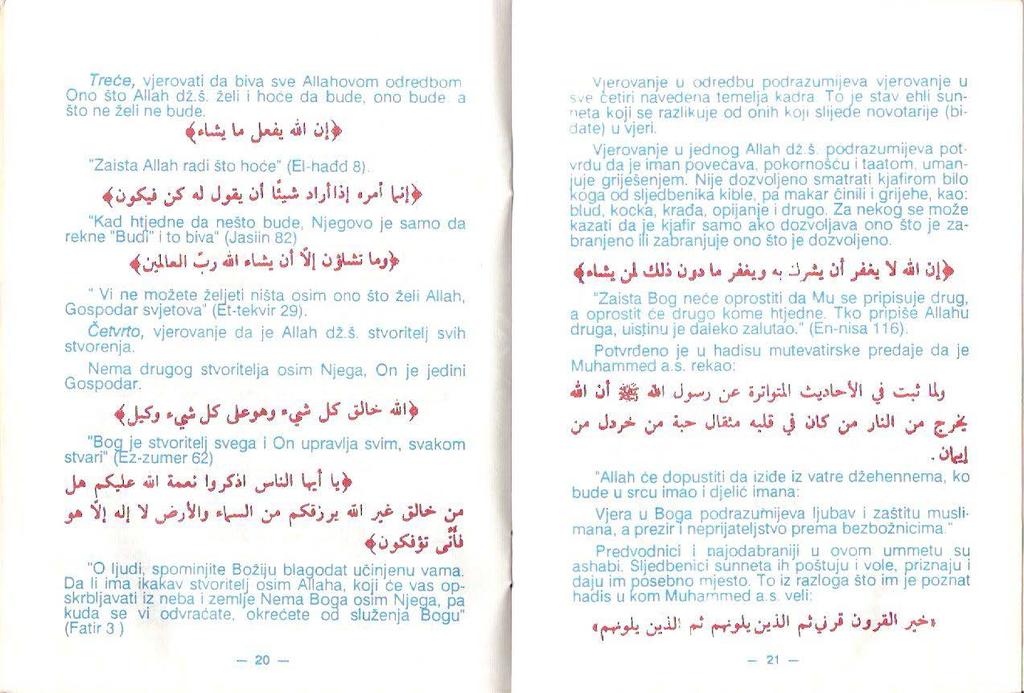 Treće, vjerovati da biva sve Allahovom odredbom
Ono što Allah dž.š. želi i hoće da bude, ono bude a
što ne želi ne bude.
﴿إن الله يفعل ما يشاء﴾
"Zaista Allah radi što hoće" (El-hađd 8).
﴿إنما أمره إذا أراد شيئا أن يقول له كن فيكون﴾
"Kad htjedne da nešto bude, Njegovo je samo da
rekne "Budi" i to biva" (Jasiin 82)
﴿وما تشاؤن إلا أن يشاء الله ربّ العالمين﴾
" Vi ne možete željeti ništa osim ono što želi Allah,
Gospodar svjetova" (Et-tekvir 29).
Četvrto, vjerovanje da je Allah dž.š. stvoritelj svih
stvorenja.
Nema drugog stvoritelja osim Njega, On je jedini
Gospodar.
﴿الله خالق كل شيء وهوعلى كل شيء وكيل﴾
"Bog je stvoritelj svega i On upravlja svim, svakom
stvari" (Ez-zumer 62)
﴿يا أيها الناس اذكروا نعمة الله عليكم هل
من خالق غير الله يرزقكم من السماء والأرض لا إله إلّا هو
فأنّى تؤفكون﴾
"O ljudi, spominjite Božiju blagodat učinjenu vama.
Da li ima ikakav stvoritelj osim Allaha, koji će vas op-
skrbljavati iz neba i zemlje Nema Boga osim Njega, pa
kuda se vi odvraćate, okrećete od služenja Bogu"
(Fatir 3 )
— 20 —
Vjerovanje u odredbu podrazumijeva vjerovanje u
sve četiri navedena temelja kadra. To je stav ehli sun-
neta koji se razlikuje od onih koji slijede novotarije (bi-
date) u vjeri.
Vjerovanje u jednog Allah dž.š. podrazumijeva pot-
vrdu da je iman povećava, pokornošću i taatom, uman-
juje griješenjem. Nije dozvoljeno smatrati kjafirom bilo
koga od sljedbenika kible, pa makar činili i grijehe, kao:
blud, kocka, krađa, opijanje i drugo. Za nekog se može
kazati da je kjafir samo ako dozvoljava ono što je za-
branjeno ili zabranjuje ono što je dozvoljeno.
﴿إن الله لا يغفر أن يشرك به ويغفر ما دون ذلك لمن يشاء﴾
"Zaista Bog neće oprostiti da Mu se pripisuje drug,
a oprostit će drugo kome htjedne. Tko pripiše Allahu
druga, uistinu je daleko zalutao." (En-nisa 116).
Potvrđeno je u hadisu mutevatirske predaje da je
Muhammed a.s. rekao:
ولما ثبت في الأحاديث المتواترة عن رسول الله ﷺ أن الله
يخرج من النار من كان في قلبه مثقال حبة من خردل من
إيمان .
"Allah će dopustiti da iziđe iz vatre džehennema, ko
bude u srcu imao i djelić imana:
Vjera u Boga podrazumijeva ljubav i zaštitu musli-
mana, a prezir i neprijateljstvo prema bezbožnicima."
Predvodnici i najodabraniji u ovom ummetu su
ashabi. Sljedbenici sunneta ih poštuju i vole, priznaju i
daju im posebno mjesto. To iz razloga što im je poznat
hadis u kom Muhammed a.s. veli:
«خير القرون قرني ثم الذين يلونهم ثم الذين يلونهم»
— 21 —